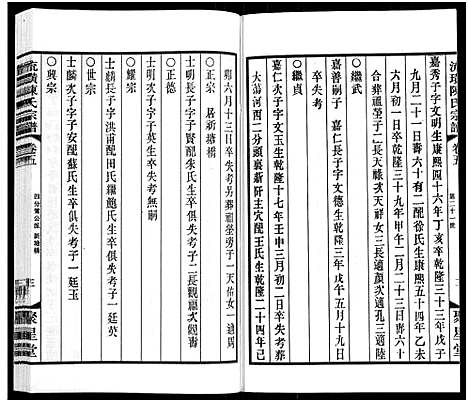 流璜陳氏宗譜 卷五
第二十一世
嘉秀子字文明生康熙四十六年丁亥卒乾隆三十三年戊子
九月二十一日壽六十有二配徐氏生康熙五十四年
卒乾隆四十年六月二十三日壽六十
合葬祖塋子二長繼武次繼貞女二長適孔三適陸
○繼武
嘉善長子字文德生乾隆三年戊午五月十九日
卒失考
○繼貞
嘉仁次子字文安生乾隆十七年壬申三月初二日卒失考葬
大蕩河西二分頭裏新阡主穴配王氏生乾隆二十四年己
卯六月十三日卒失考另葬祖塋旁子一天佑女一適周
○正宗 居新塘橋
士明長子字賢配朱氏生卒俱失考子二長觀龍次觀
○正德
士明次子字 生卒失考無嗣
○耀宗
士麟長子字洪甫配田氏繼鮑氏生卒俱失考子一廷英
○世宗
士麟次子字安配蘇氏生卒俱失考子一廷玉
○興宗
流璜陳氏宗譜 卷五
四分常公派 新塘橋
三
聚星堂